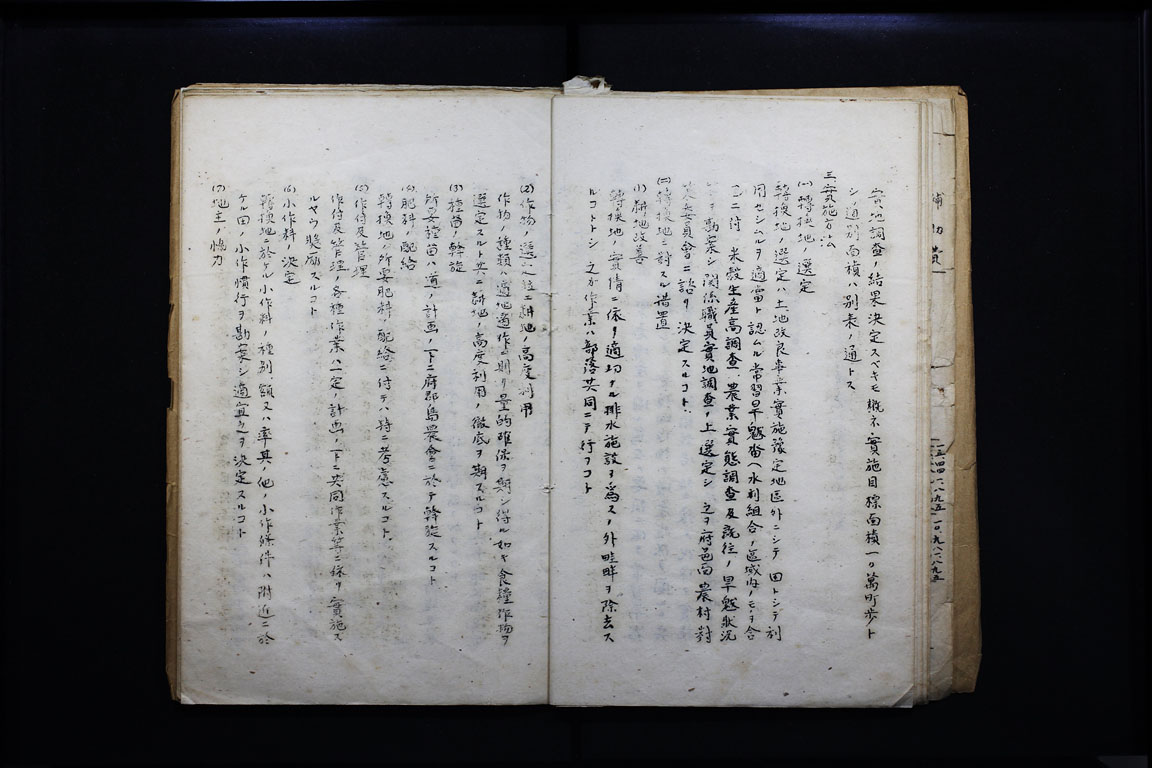 補助費
二五四四、八九五 一〇九八、八九五
實地調査ノ結果決定スベキモ概ネ實施目標面積一〇萬町歩ト
シノ道別面積ハ別表ノ通トス
三、實施方法
(一)轉換地ノ選定
轉換地ノ選定ハ土地改良事業實施豫定地區外ニシテ田トシテ利
用セシムルヲ適當ト認ムル常習旱魃畓(水利組合ノ區域内ノモノヲ含
ム)ニ付 米穀生産高調査、農業實態調査及既往ノ旱魃狀況
等ヲ勘案シ關係職員實地調査ノ上選定シ之ヲ府邑面農村對
策委員會ニ諮リ決定スルコト
(二)轉換地ニ對スル措置
(1)耕地改善
轉換地ノ實情ニ依リ適切ナル排水施設ヲ爲スノ外畦畔ヲ除去ス
ルコトトシ之ガ作業ハ部落共同ニテ行フコト
(2)作物ノ選定竝ニ耕地ノ高度利用
作物ノ種類ハ適地適作ニ則リ量的確保ヲ期シ得ル如キ食糧作物ヲ
選定スルト共ニ耕地ノ高度利用ノ徹底ヲ期スルコト
(3)種苗ノ斡旋
所要種苗ハ道ノ計画ノ下ニ府郡島農會ニ於テ斡旋スルコト
(4)肥料ノ配給
轉換地ノ所要肥料ノ配給ニ付テハ特ニ考慮スルコト
(5)作付及管理
作付及管理ノ各種作業ハ一定ノ計画ノ下ニ共同作業等ニ依リ實施ス
ルヤウ獎勵スルコト
(6)小作料ノ決定
轉換地ニ於ケル小作料ノ種別、額又ハ率其ノ他ノ小作條件ハ附近ニ於
ケル田ノ小作慣行ヲ勘案シ適宜之ヲ決定スルコト
(7)地主ノ協力